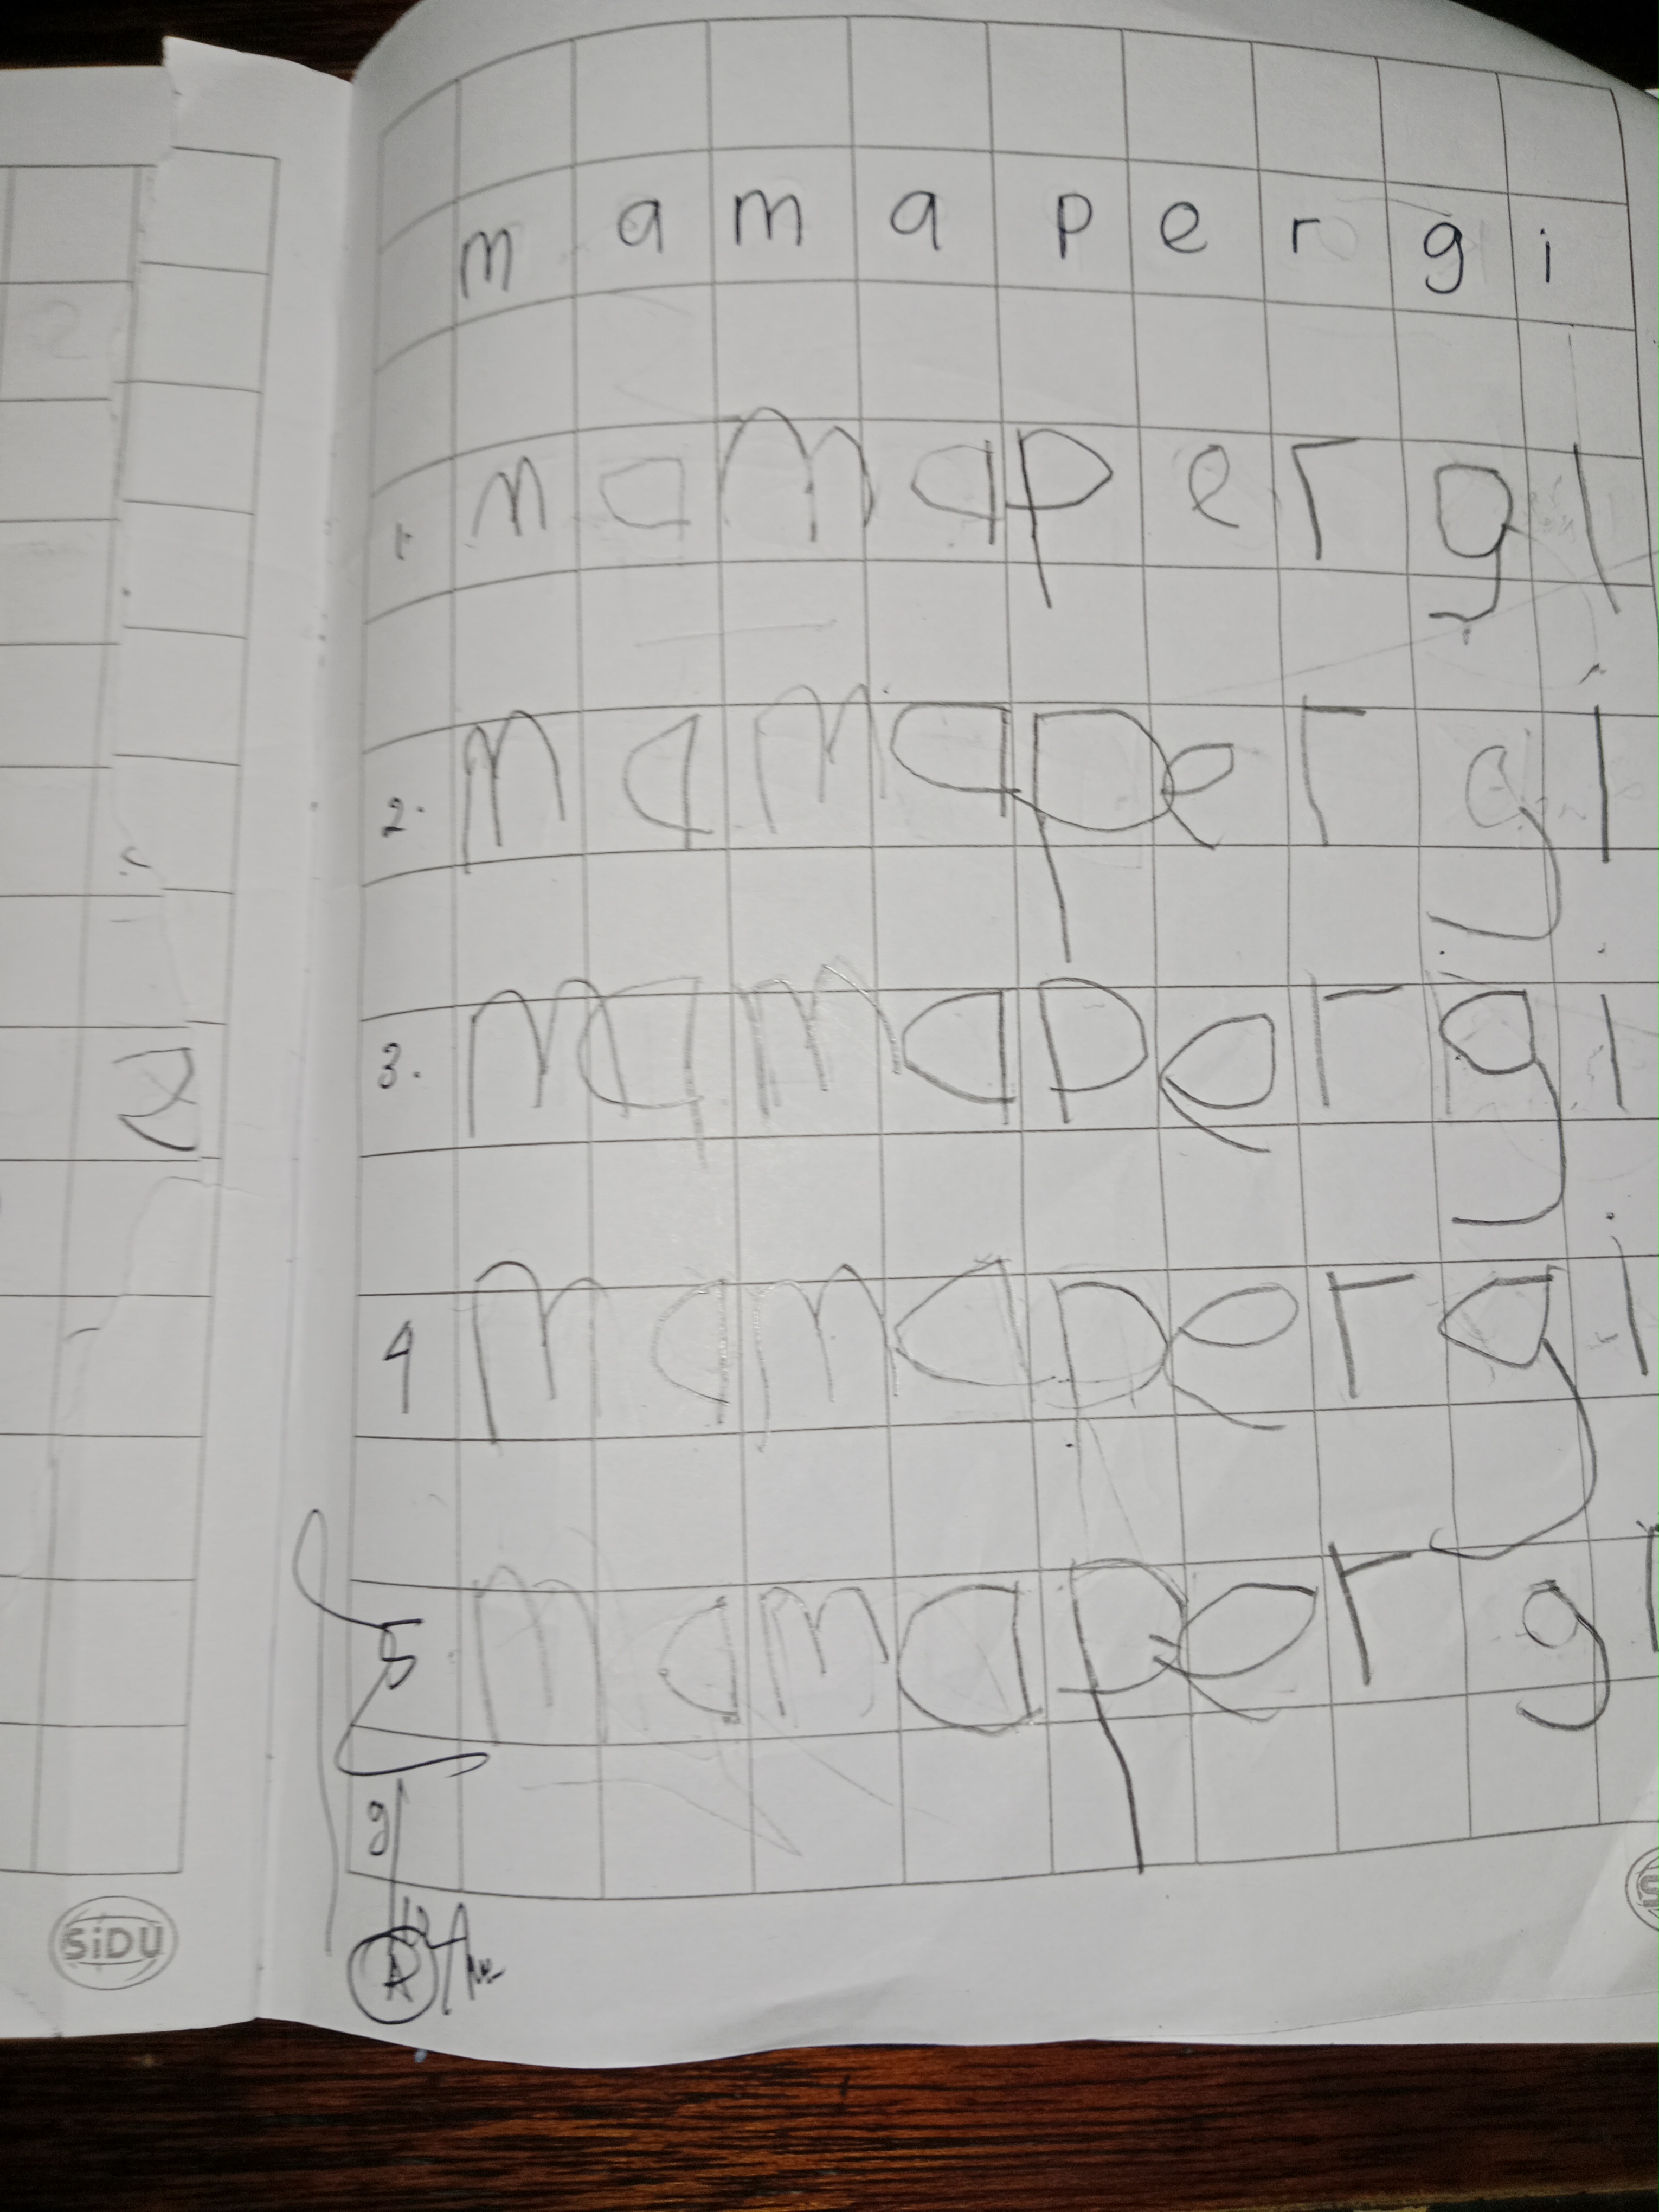 m a m a p e r g i
1. m a m a p e r g i
2. m a m a p e r g i
3. m a m a p e r g i
4 m a m a p e r g i
5. m a m a p e r g i
g
A
SiDU
2